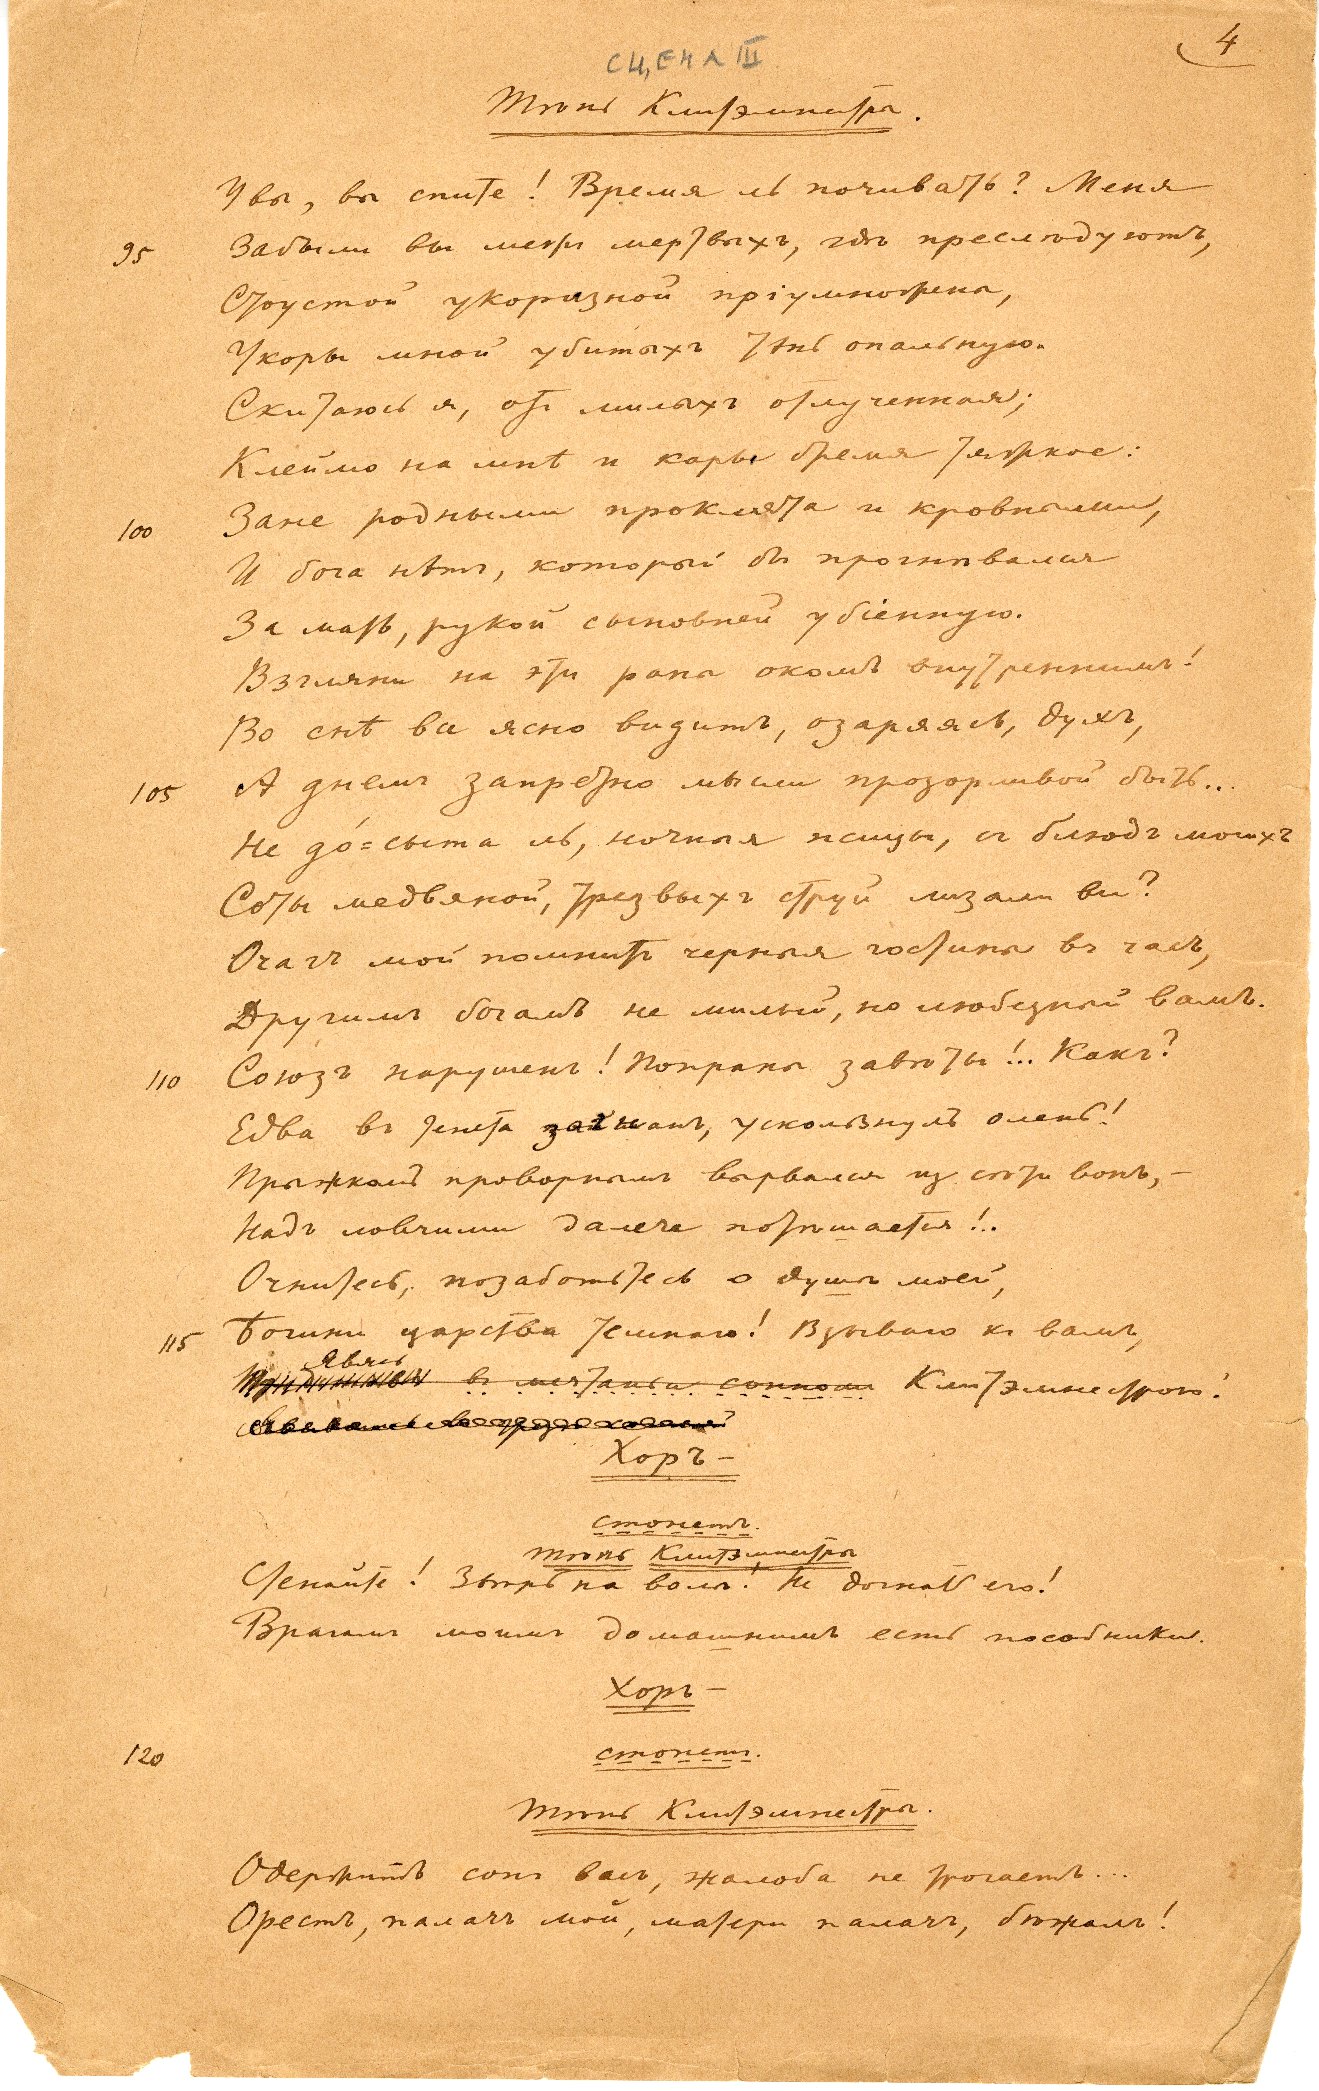 4
СЦЕНА III
Тѣнь Клитэмнестры.
Увы, вы спите! Время ль почивать? Меня
95 Забыли вы межъ мертвыхъ, гдѣ преслѣдуютъ,
Стоустой укоризной пріумножена,
Укоры мной убитыхъ тѣнь опальную.
Скитаюсь я, отъ милыхъ отлученная;
Клеймо на мнѣ и кары бремя тяжкое:
100 Зане родными проклята и кровными,
И бога нѣтъ, который бы прогнѣвался
За мать, рукой сыновней убіенную.
Взгляни на эти раны окомъ внутреннимъ!
Во снѣ вся ясно видитъ, озаряясь, духъ,
105 А днемъ запретно мысли прозорливой быть...
Не до́=сыта ль, ночныя псицы, съ блюдъ моихъ
Соты медвяной, трезвыхъ струй лизали вы?
Очагъ мой помнитъ черныя гостины въ часъ,
Другимъ богамъ не милый, но любезный вамъ.
110 Союзъ нарушенъ! Попраны завѣты!... Какъ?
Едва въ тенета загнанъ, ускользнулъ олень!
Прыжкомъ проворнымъ вырвался изъ сѣти вонъ, –
Надъ ловчими далече потѣшается!..
Очнитесь, позаботьтесь о душѣ моей,
115 Богини царства темнаго! Взываю къ вамъ,
Явясь
въ мечтаньи сонномъ Клитэмнестрою!
Хоръ –
стонетъ.
Тѣнь Клитэмнестры
Стенайте! Звѣрь на волѣ! Не догнать его!
Врагамъ моимъ домашнимъ есть пособники.
Хоръ –
120 стонетъ.
Тѣнь Клитэмнестры.
Одержитъ сонъ васъ, жалоба не трогаетъ...
Орестъ, палачъ мой, матери палачъ, бѣжалъ!